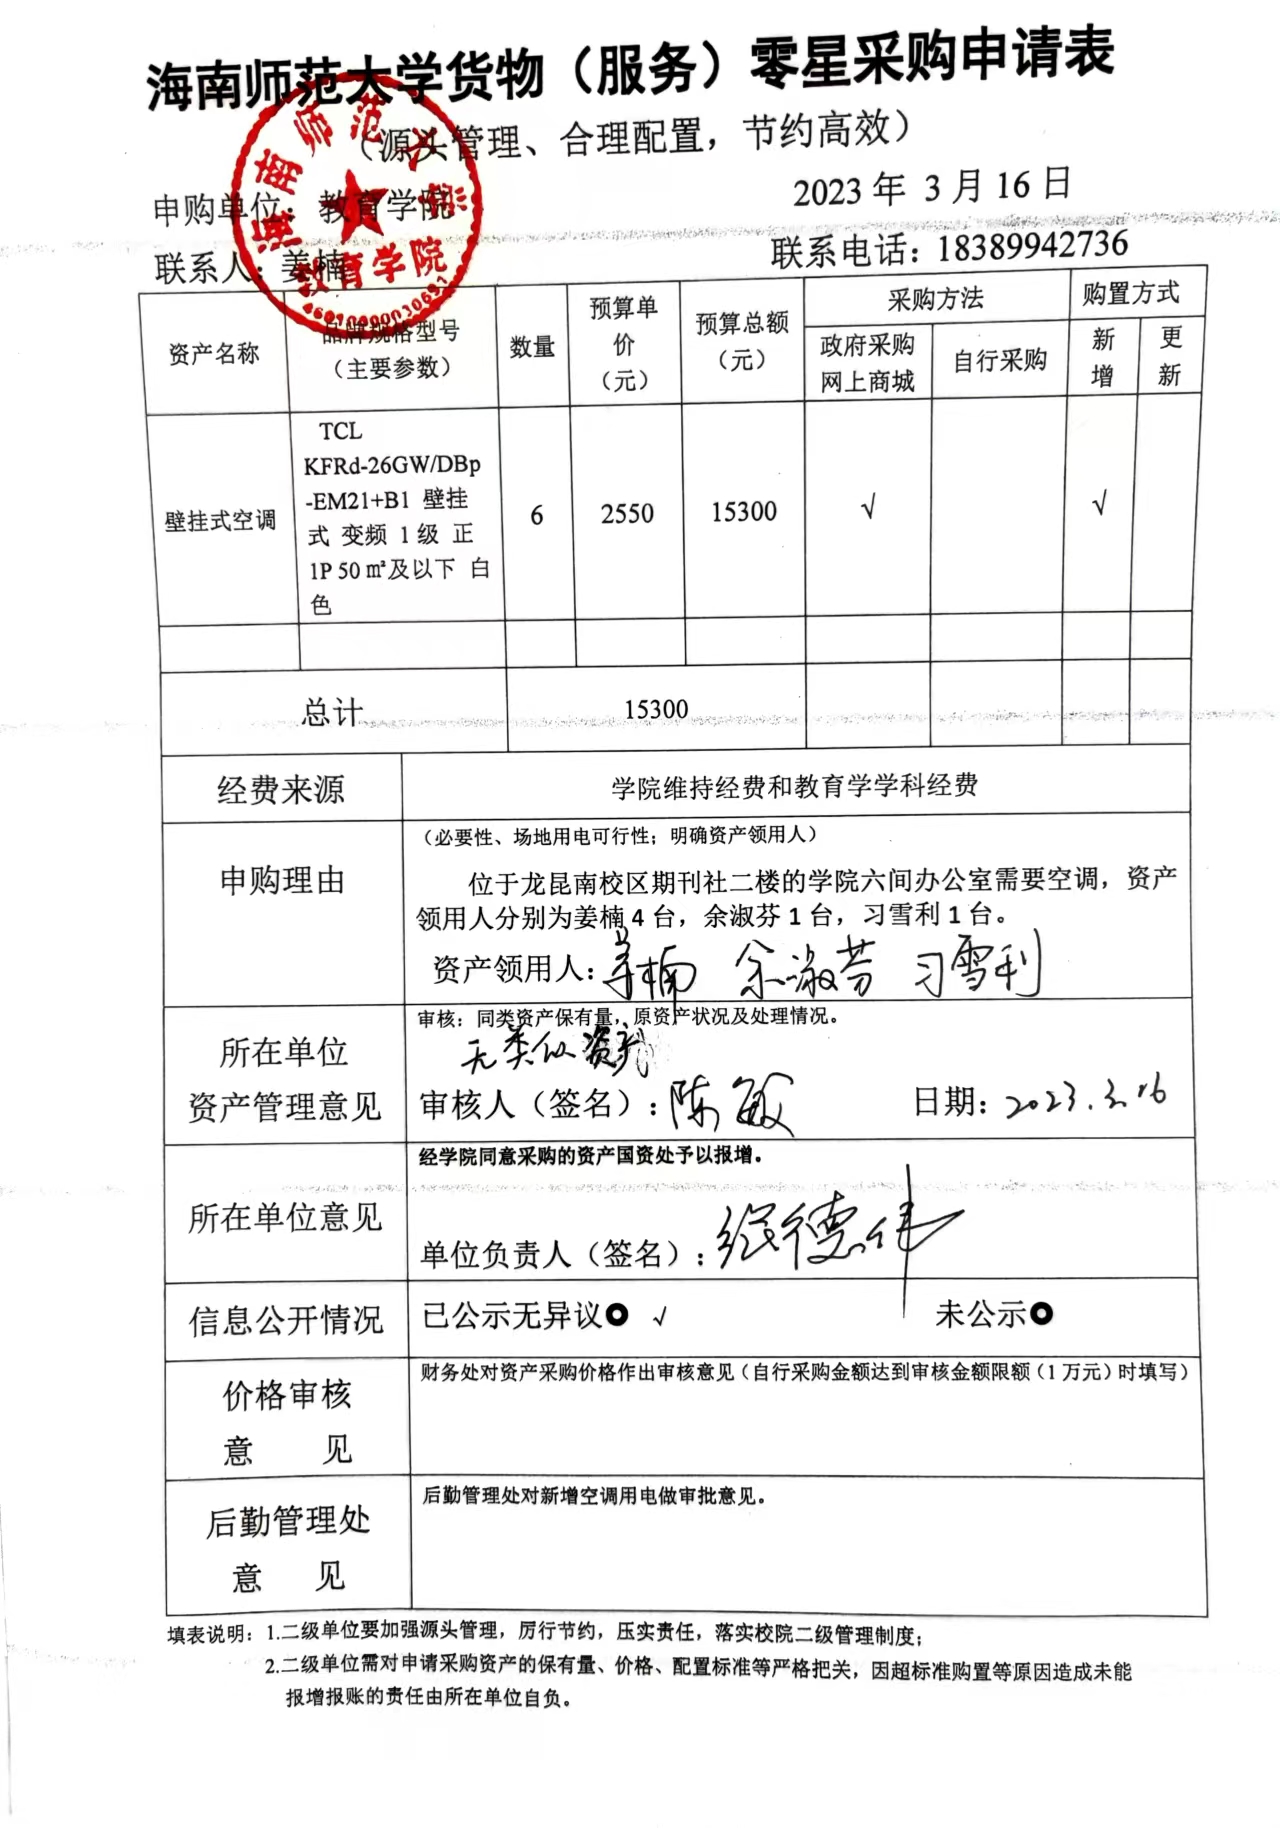 海南师范大学货物（服务）零星采购申请表
（源头管理、合理配置，节约高效）
申购单位：教育学院
2023 年 3 月 16 日
联系人：姜楠
联系电话：18389942736
海南师范大学
教育学院
资产名称
品牌规格型号
（主要参数）
数量
预算单
价
（元）
预算总额
（元）
采购方法
政府采购
网上商城
自行采购
购置方式
新
增
更
新
壁挂式空调
TCL
KFRd-26GW/DBp
-EM21+B1 壁挂
式 变频 1 级 正
1P 50 ㎡及以下 白
色
6
2550
15300
√
√
总计
15300
经费来源
学院维持经费和教育学学科经费
申购理由
（必要性、场地用电可行性；明确资产领用人）
位于龙昆南校区期刊社二楼的学院六间办公室需要空调，资产
领用人分别为姜楠 4 台，余淑芬 1 台，习雪利 1 台。
资产领用人：姜楠 余淑芬 习雪利
所在单位
资产管理意见
审核：同类资产保有量，原资产状况及处理情况。
无类似资产
审核人（签名）：陈敏 日期：2023.3.16
所在单位意见
经学院同意采购的资产国资处予以报增。
单位负责人（签名）：
信息公开情况
已公示无异议 √ 未公示
价格审核
意 见
财务处对资产采购价格作出审核意见（自行采购金额达到审核金额限额（1 万元）时填写）
后勤管理处
意 见
后勤管理处对新增空调用电做审批意见。
填表说明：1.二级单位要加强源头管理，厉行节约，压实责任，落实校院二级管理制度；
2.二级单位需对申请采购资产的保有量、价格、配置标准等严格把关，因超标准购置等原因造成未能
报增报账的责任由所在单位自负。